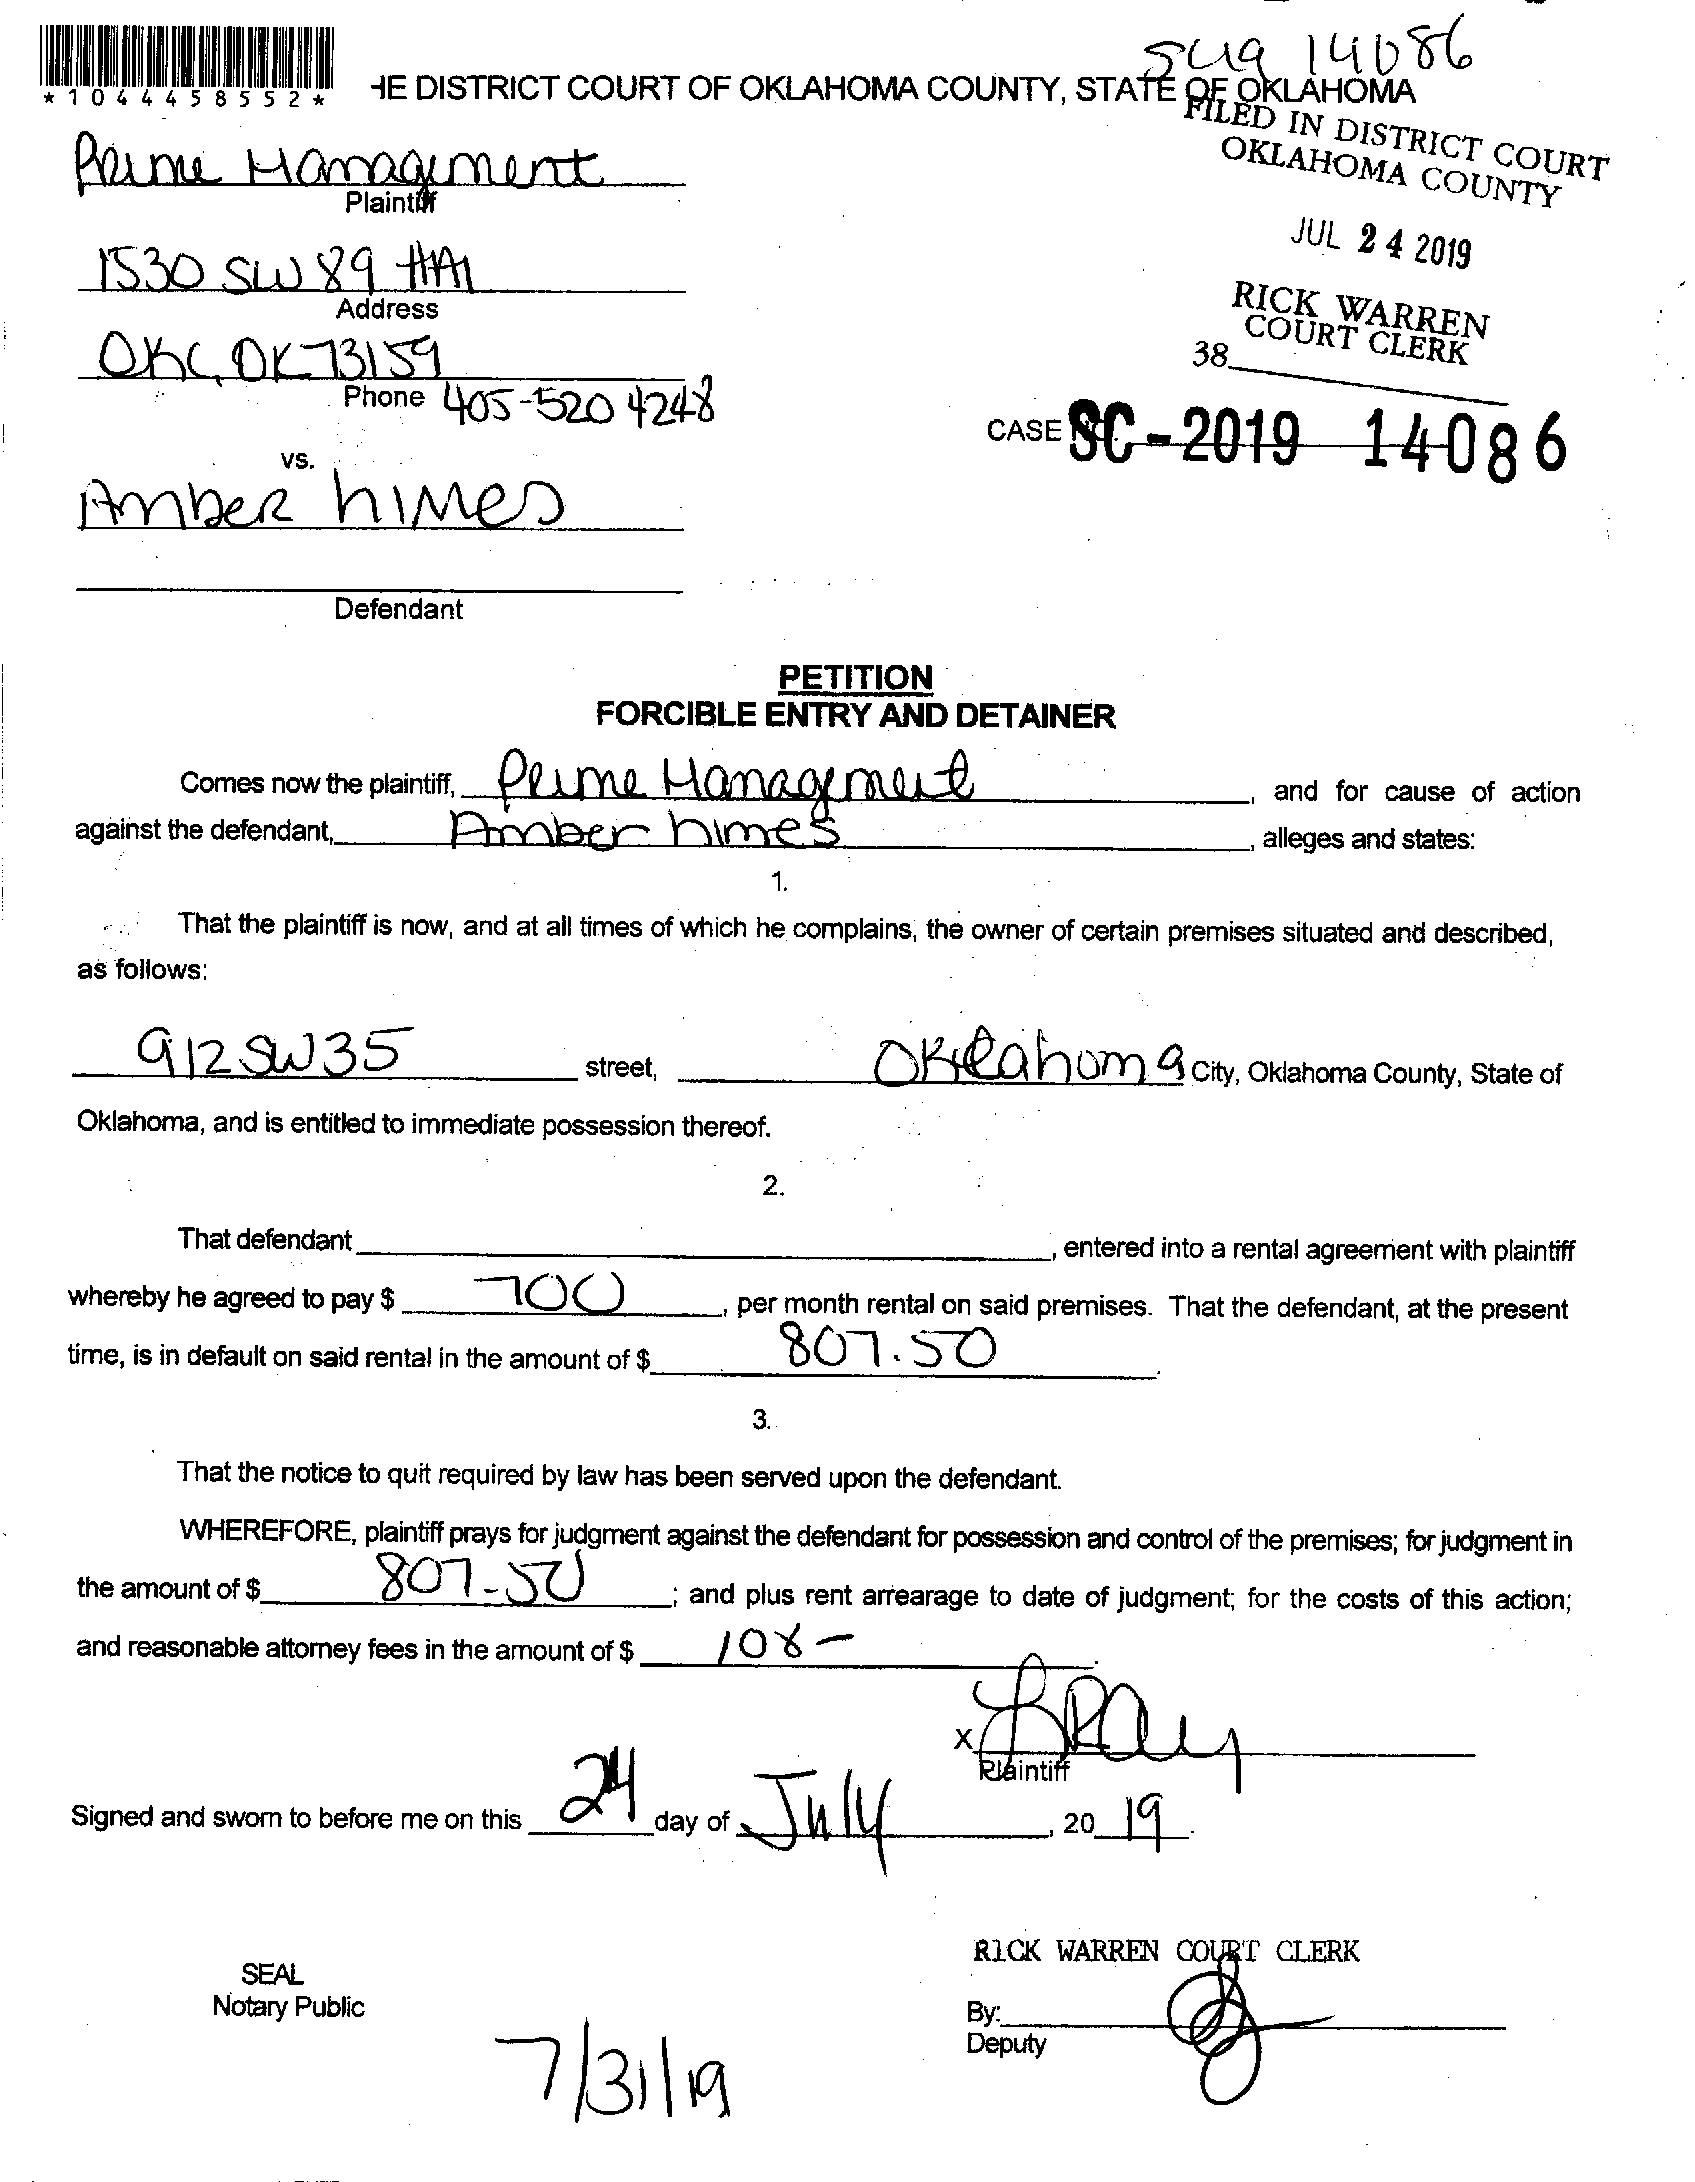 SC19 14086
*1044458552*
HE DISTRICT COURT OF OKLAHOMA COUNTY, STATE OF OKLAHOMA
FILED IN DISTRICT COURT
OKLAHOMA COUNTY
Prime Management
Plaintiff
JUL 24 2019
1530 SW 89 #A1
Address
RICK WARREN
COURT CLERK
38
OKC, OK 73159
Phone 405-520 4248
CASE NO. SC-2019 14086
vs.
Amber himes
Defendant
PETITION
FORCIBLE ENTRY AND DETAINER
Comes now the plaintiff, Prime Management, and for cause of action
against the defendant, Amber himes, alleges and states:
1.
That the plaintiff is now, and at all times of which he complains, the owner of certain premises situated and described,
as follows:
912 SW 35 street, Oklahoma City, Oklahoma County, State of
Oklahoma, and is entitled to immediate possession thereof.
2.
That defendant, entered into a rental agreement with plaintiff
whereby he agreed to pay $ 700, per month rental on said premises. That the defendant, at the present
time, is in default on said rental in the amount of $ 807.50.
3.
That the notice to quit required by law has been served upon the defendant.
WHEREFORE, plaintiff prays for judgment against the defendant for possession and control of the premises; for judgment in
the amount of $ 807-50; and plus rent arrearage to date of judgment; for the costs of this action;
and reasonable attorney fees in the amount of $ 108-.
X
Plaintiff
Signed and sworn to before me on this 24 day of July, 2019.
RICK WARREN COURT CLERK
SEAL
Notary Public
By:
Deputy
7/31/19